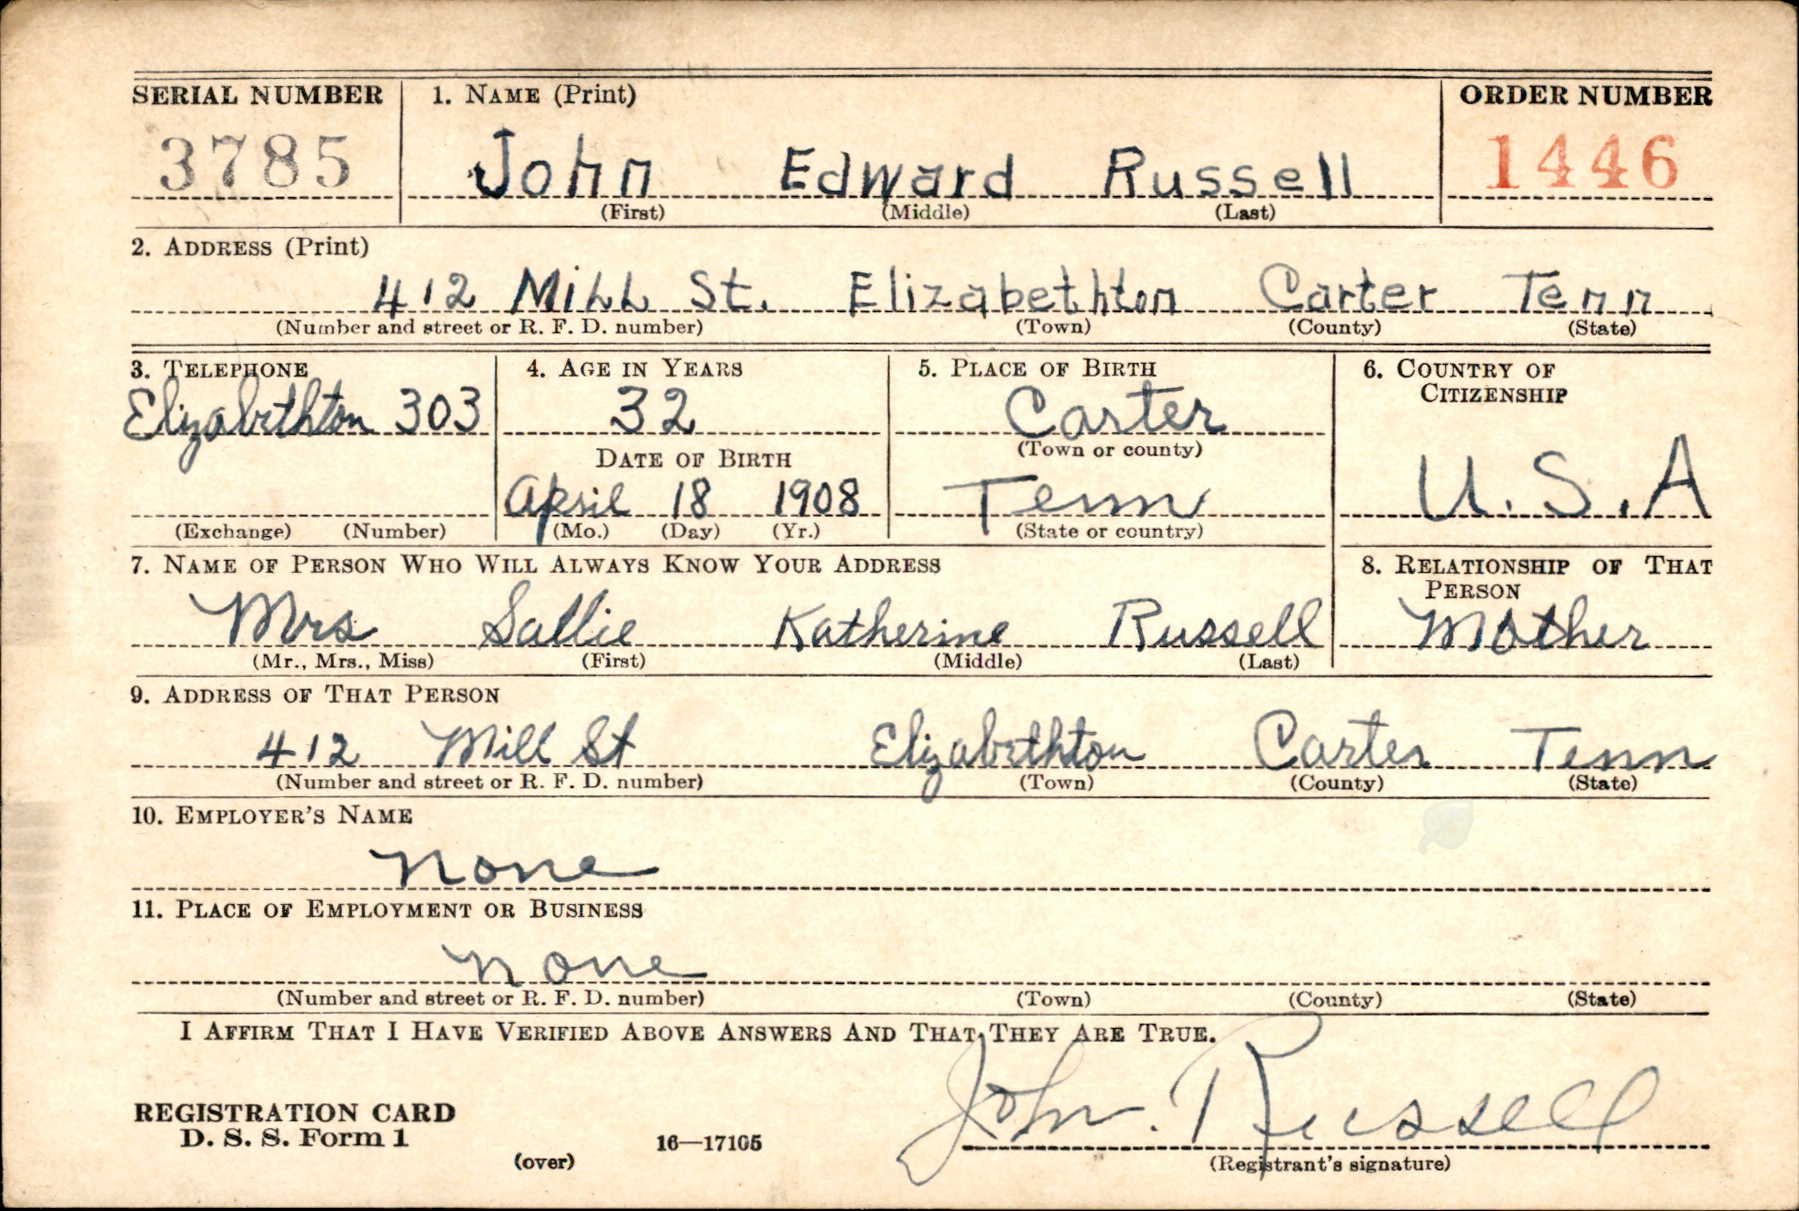 SERIAL NUMBER 1. NAME (Print) ORDER NUMBER
3785 John Edward Russell 1446
(First) (Middle) (Last)
2. ADDRESS (Print)
412 Mill St. Elizabethton Carter Tenn
(Number and street or R. F. D. number) (Town) (County) (State)
3. TELEPHONE 4. AGE IN YEARS 5. PLACE OF BIRTH 6. COUNTRY OF
CITIZENSHIP
Elizabethton 303 32 Carter
(Town or county)
DATE OF BIRTH
April 18 1908 Tenn U.S.A
(Exchange) (Number) (Mo.) (Day) (Yr.) (State or country)
7. NAME OF PERSON WHO WILL ALWAYS KNOW YOUR ADDRESS 8. RELATIONSHIP OF THAT
PERSON
Mrs Sallie Katherine Russell Mother
(Mr., Mrs., Miss) (First) (Middle) (Last)
9. ADDRESS OF THAT PERSON
412 Mill St Elizabethton Carter Tenn
(Number and street or R. F. D. number) (Town) (County) (State)
10. EMPLOYER'S NAME
None
11. PLACE OF EMPLOYMENT OR BUSINESS
None
(Number and street or R. F. D. number) (Town) (County) (State)
I AFFIRM THAT I HAVE VERIFIED ABOVE ANSWERS AND THAT THEY ARE TRUE.
REGISTRATION CARD
D. S. S. Form 1 16—17105 John. Russell
(over) (Registrant's signature)